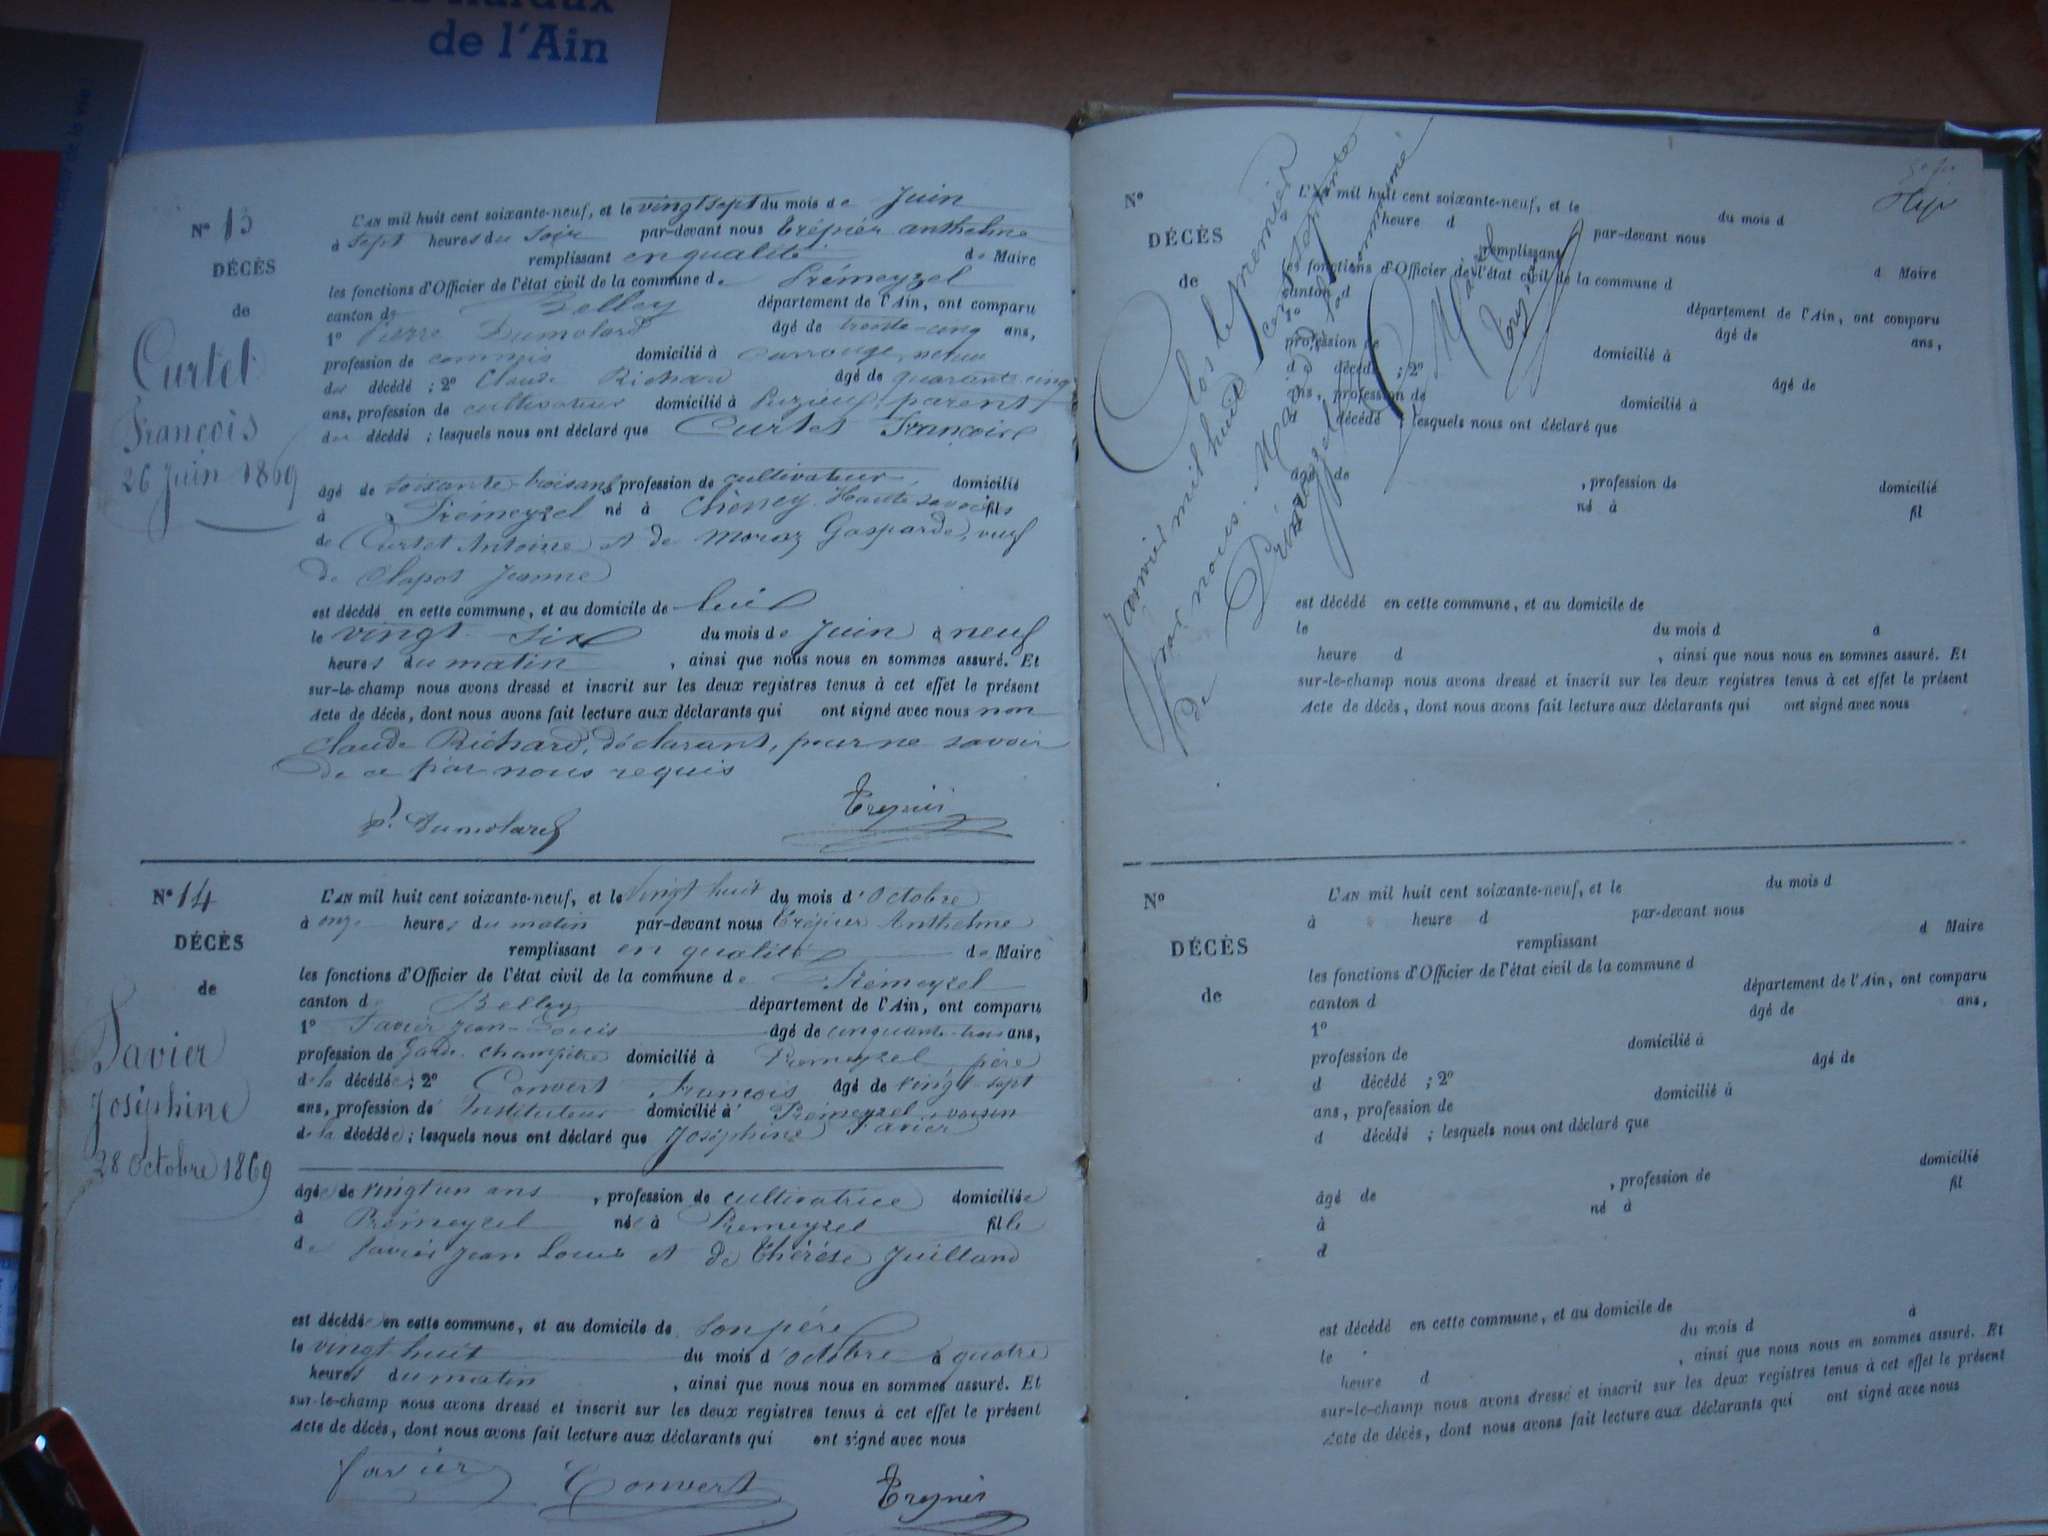 de l'Ain
N° 13
DÉCÈS
de
Curtet
François
26 Juin 1869
L'AN mil huit cent soixante-neuf, et le vingt sept du mois de Juin
à sept heures du soir par-devant nous Trépier anthelme
remplissant en qualité de Maire
les fonctions d'Officier de l'état civil de la commune de Prémeyzel
canton de Belley département de l'Ain, ont comparu
1° Pierre Dumolard âgé de trente-cinq ans,
profession de commis domicilié à
du décédé ; 2° Claude Richard âgé de quarante cinq
ans, profession de cultivateur domicilié à parent
du décédé ; lesquels nous ont déclaré que Curtet François
âgé de soixante-trois ans, profession de cultivateur, domicilié
à Prémeyzel né à Haute Savoie fils
de Curtet Antoine et de Moraz Gasparde, veuf
de Clapot Jeanne
est décédé en cette commune, et au domicile de lui
le vingt-six du mois de Juin à neuf
heures du matin , ainsi que nous nous en sommes assuré. Et
sur-le-champ nous avons dressé et inscrit sur les deux registres tenus à cet effet le présent
Acte de décès, dont nous avons fait lecture aux déclarants qui ont signé avec nous non
Claude Richard, déclarant, pour ne savoir
de ce par nous requis
P. Dumolard Trépier
N° 14
DÉCÈS
de
Tavier
Joséphine
28 Octobre 1869
L'AN mil huit cent soixante-neuf, et le vingt huit du mois d'Octobre
à onze heures du matin par-devant nous Trépier Anthelme
remplissant en qualité de Maire
les fonctions d'Officier de l'état civil de la commune de Prémeyzel
canton de Belley département de l'Ain, ont comparu
1° Tavier Jean-Louis âgé de cinquante-trois ans,
profession de garde champêtre domicilié à Prémeyzel père
de la décédée ; 2° Convert François âgé de vingt-sept
ans, profession de Instituteur domicilié à Prémeyzel, voisin
de la décédée ; lesquels nous ont déclaré que Joséphine Tavier
âgée de vingt un ans , profession de cultivatrice domiciliée
à Prémeyzel née à Prémeyzel fille
de Tavier Jean Louis et de Thérèse Juilland
est décédée en cette commune, et au domicile de son père
le vingt huit du mois d'octobre à quatre
heures du matin , ainsi que nous nous en sommes assuré. Et
sur-le-champ nous avons dressé et inscrit sur les deux registres tenus à cet effet le présent
Acte de décès, dont nous avons fait lecture aux déclarants qui ont signé avec nous
Tavier Convert Trépier
N°
DÉCÈS
de
L'AN mil huit cent soixante-neuf, et le du mois d
heure d par-devant nous
remplissant d Maire
les fonctions d'Officier de l'état civil de la commune d
canton d département de l'Ain, ont comparu
1° âgé de ans,
profession de domicilié à
d décédé ; 2° âgé de
ans, profession de domicilié à
décédé ; lesquels nous ont déclaré que
âgé de , profession de domicilié
né à fil
est décédé en cette commune, et au domicile de
le du mois d à
heure d , ainsi que nous nous en sommes assuré. Et
sur-le-champ nous avons dressé et inscrit sur les deux registres tenus à cet effet le présent
Acte de décès, dont nous avons fait lecture aux déclarants qui ont signé avec nous
Clos le premier
Janvier mil huit cent soixante
par nous Maire
de Prémeyzel
Le Maire
Trépier
N°
DÉCÈS
de
L'AN mil huit cent soixante-neuf, et le du mois d
à heure d par-devant nous
remplissant d Maire
les fonctions d'Officier de l'état civil de la commune d
canton d département de l'Ain, ont comparu
1° âgé de ans,
profession de domicilié à
d décédé ; 2° âgé de
ans, profession de domicilié à
d décédé ; lesquels nous ont déclaré que
âgé de , profession de domicilié
à né à fil
d
est décédé en cette commune, et au domicile de
le du mois d à
heure d , ainsi que nous nous en sommes assuré. Et
sur-le-champ nous avons dressé et inscrit sur les deux registres tenus à cet effet le présent
Acte de décès, dont nous avons fait lecture aux déclarants qui ont signé avec nous